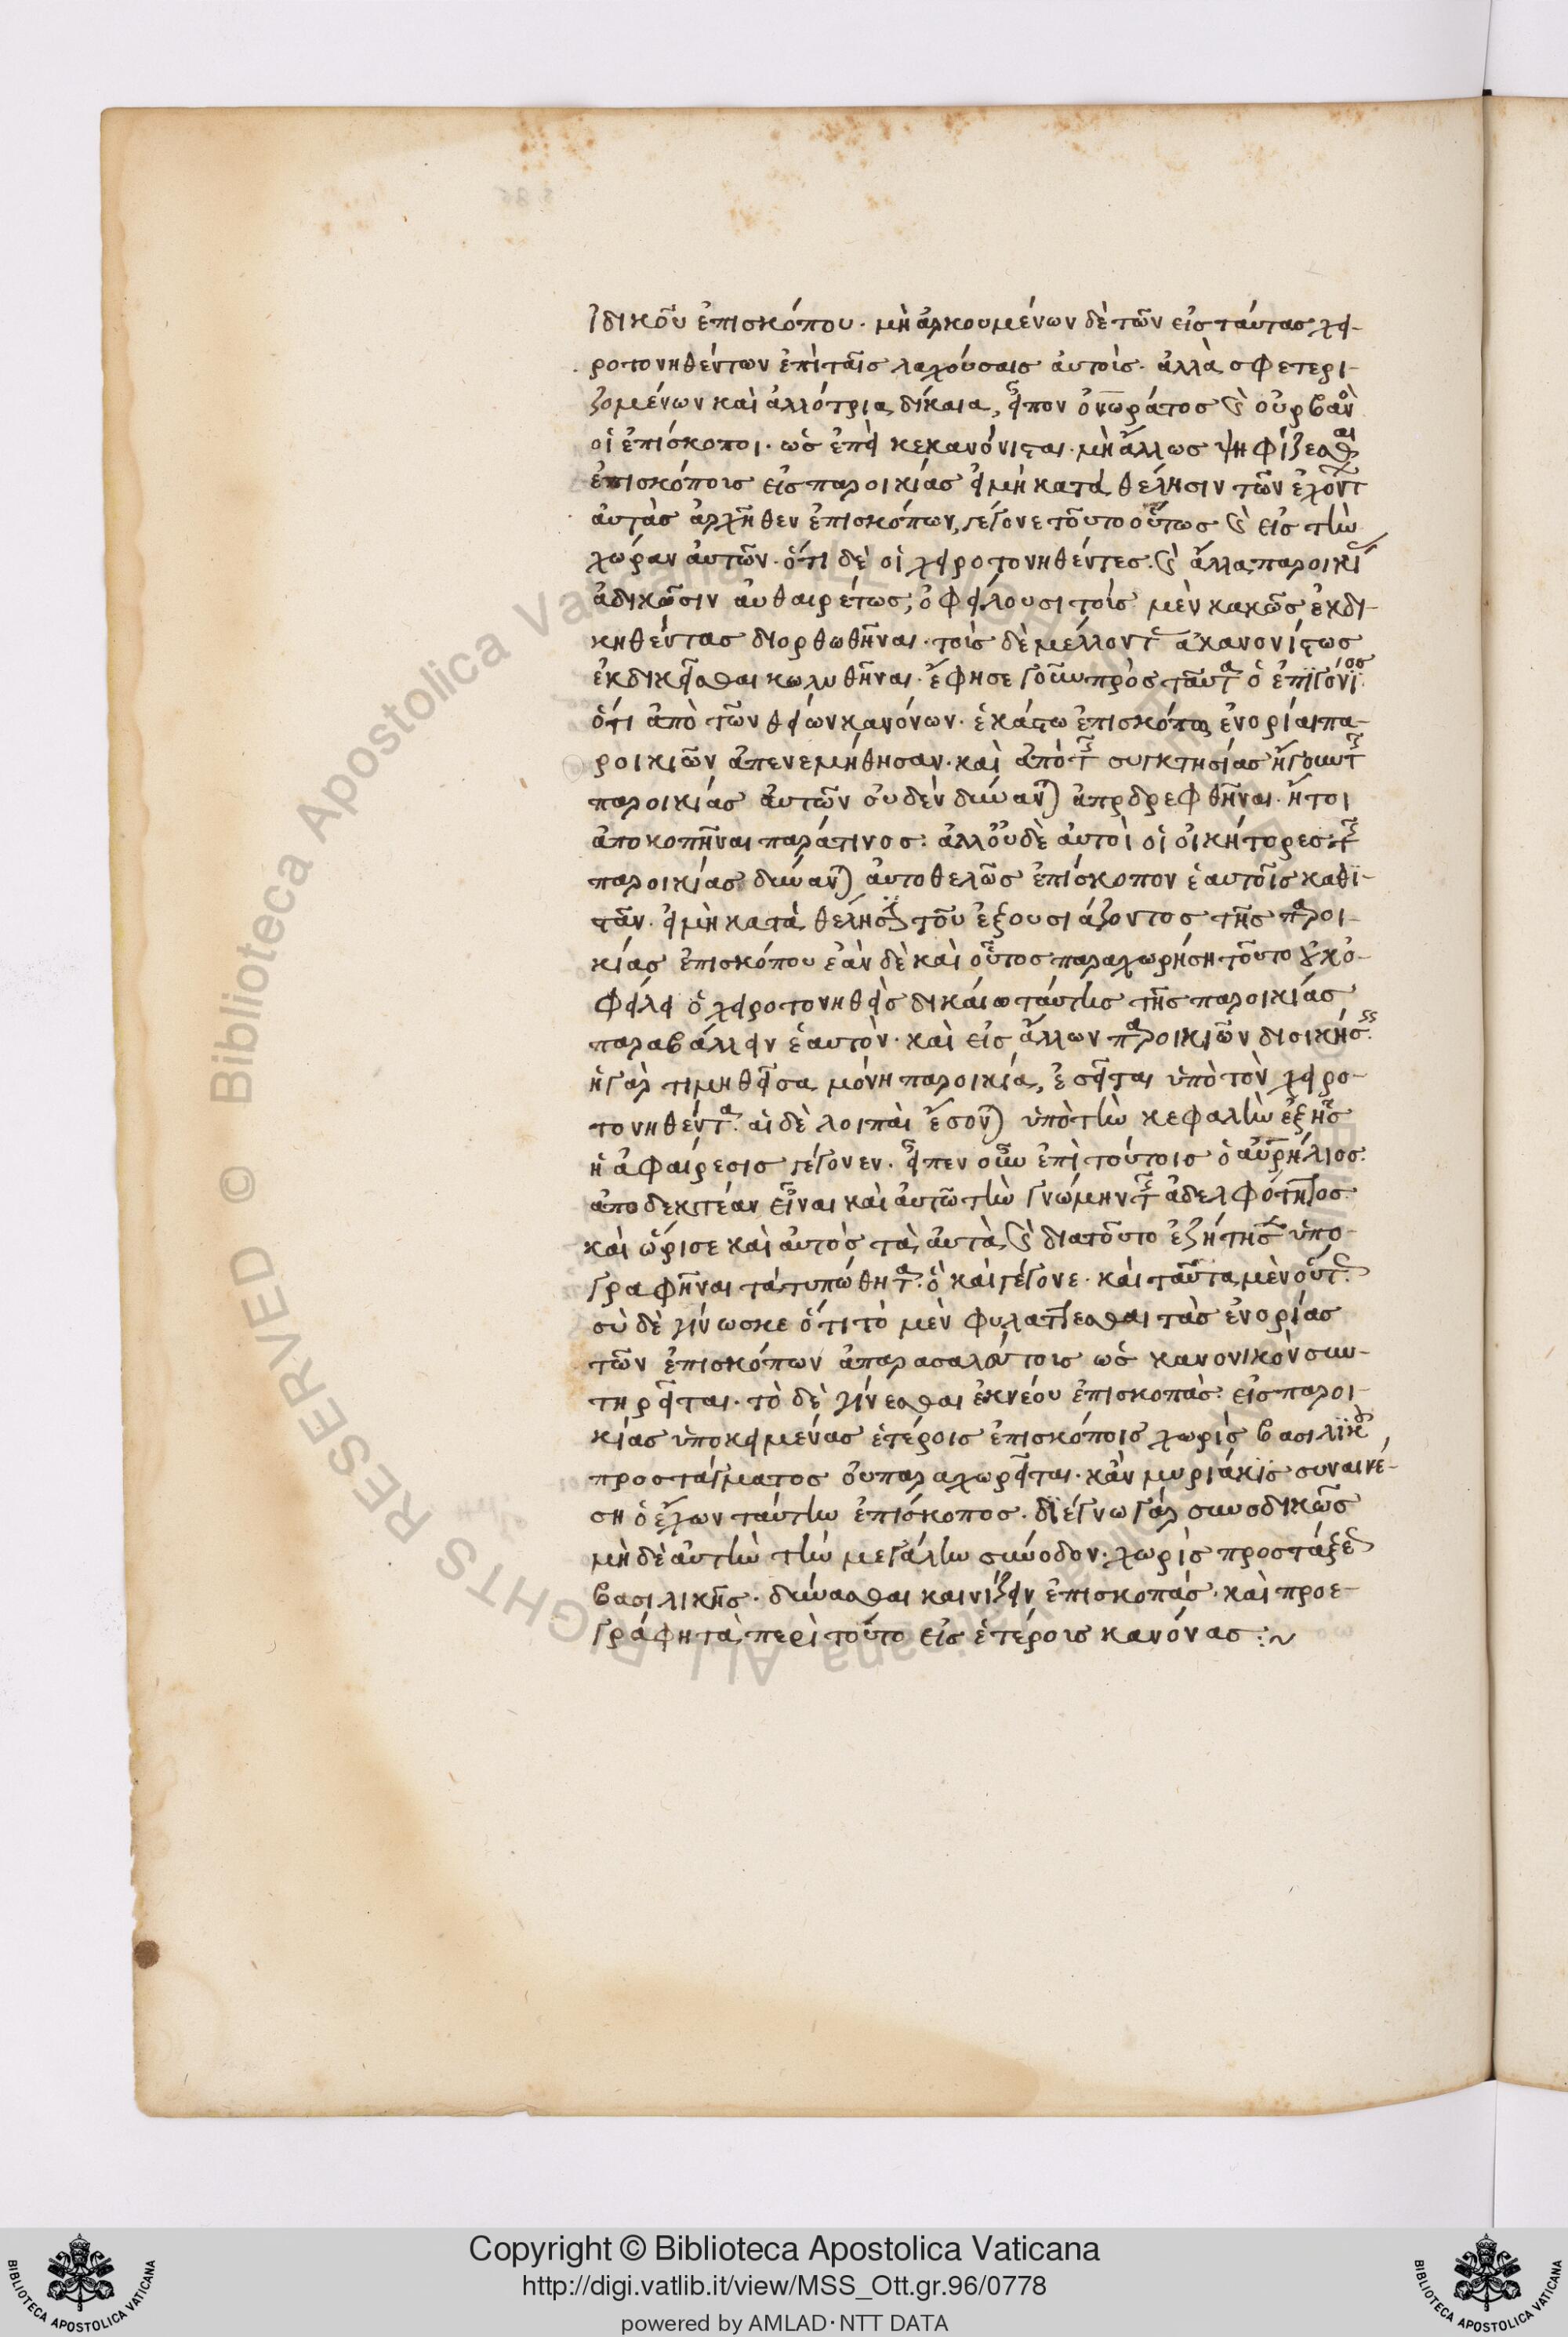 ἰδικοῦ ἐπισκόπου· μὴ ἀρκουμένων δὲ τῶν εἰς ταύτας χει-
ροτονηθέντων ἐπὶ ταῖς λαχούσαις αὐτοῖς· ἀλλὰ σφετερι-
ζομένων καὶ ἀλλότρια δίκαια, εἶπον ὀνωράτος καὶ οὐρβανὸς
οἱ ἐπίσκοποι· ὡς ἐπεὶ κεκανόνισται· μὴ ἄλλως ψηφίζεσθαι
ἐπισκόποις εἰς παροικίας εἰ μὴ κατὰ θέλησιν τῶν ἐχόντ
αὐτὰς ἀρχῆθεν ἐπισκόπων, γέγονε τοῦτο οὕτως καὶ εἰς τὴν
χώραν αὐτῶν· ὅτι δὲ οἱ χειροτονηθέντες καὶ ἄλλας παροικί
ἀδικῶσιν αὐθαιρέτως, ὀφείλουσι τοῖς μὲν κακῶς ἐκδι-
κηθέντας διορθωθῆναι· τοῖς δὲ μέλλοντ ἀκανονίστως
ἐκδικεῖσθαι κωλυθῆναι· ἔφησε γοῦν πρὸς ταῦτα ὁ ἐπιγόνιος
ὅτι ἀπὸ τῶν θείων κανόνων· ἑκάστω ἐπισκόπω ἐνορίαι πα-
ροικιῶν ἀπενεμήθησαν· καὶ ἀπὸ τῆς συγκτησίας ἤγουν τῆς
παροικίας αὐτῶν οὐδὲν δύναται ἀποδρεφθῆναι· ἤτοι
ἀποκοπῆναι παρά τινος· ἀλλ' οὐδὲ αὐτοὶ οἱ οἰκήτορες τῆς
παροικίας δύνανται αὐτοθελῶς ἐπίσκοπον ἑαυτοῖς καθι-
στᾶν· εἰ μὴ κατὰ θέλησιν τοῦ ἐξουσιάζοντος τῆς παροι-
κίας ἐπισκόπου ἐὰν δὲ καὶ οὗτος παραχωρήση τοῦτο οὐκ ὀ-
φείλει ὁ χειροτονηθεὶς δικαίω ταύτης τῆς παροικίας
παραβάλλειν ἑαυτὸν· καὶ εἰς ἄλλων παροικιῶν διοικήσεις
ἡ γὰρ τιμηθεῖσα μόνη παροικία, ἐσεῖται ὑπὸ τὸν χειρο-
τονηθέντα· αἱ δὲ λοιπαὶ ἔσονται ὑπὸ τὴν κεφαλὴν ἐξ ἧς
ἡ ἀφαίρεσις γέγονεν· εἶπεν οὖν ἐπὶ τούτοις ὁ αὐρήλιος·
ἀποδεκτέαν εἶναι καὶ αὐτῶ τὴν γνώμην τῆς ἀδελφότητος·
καὶ ὥρισε καὶ αὐτὸς τὰ αὐτὰ, καὶ διατοῦτο ἐζήτησεν ὑπο-
γραφῆναι τὰ τυπωθέντα· ὃ καὶ γέγονε· καὶ ταῦτα μὲν οὕτως·
σὺ δὲ γίνωσκε ὅτι τὸ μὲν φυλάττεσθαι τὰς ἐνορίας
τῶν ἐπισκόπων ἀπαρασαλεύτους ὡς κανονικὸν συν-
τηρεῖται· τὸ δὲ γίνεσθαι ἐκνέου ἐπισκοπὰς εἰς παροι-
κίας ὑποκειμένας ἑτέροις ἐπισκόποις χωρὶς βασιλικοῦ
προστάγματος οὐ παραχωρεῖται· κἂν μυριάκις συναινέ-
ση ὁ ἔχων ταύτην ἐπίσκοπος· διέγνω γὰρ συνοδικῶς
μὴ δὲ αὐτὴν τὴν μεγάλην σύνοδον· χωρὶς προστάξεως
βασιλικῆς· δύνασθαι καινίζειν ἐπισκοπάς· καὶ προε-
γράφη τὰ περὶ τοῦτο εἰς ἑτέροις κανόνας :~
Copyright © Biblioteca Apostolica Vaticana
http://digi.vatlib.it/view/MSS_Ott.gr.96/0778
powered by AMLAD·NTT DATA